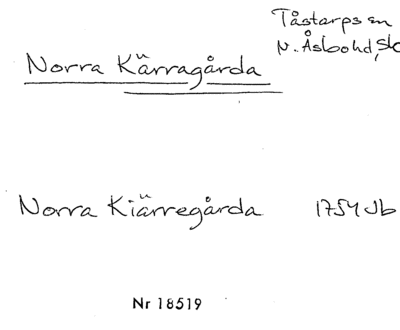 Tåstarps sn
N. Åsbohd, sk
Norra Kärragårda
Norra Kiärregårda 1754 Jb
Nr 18519